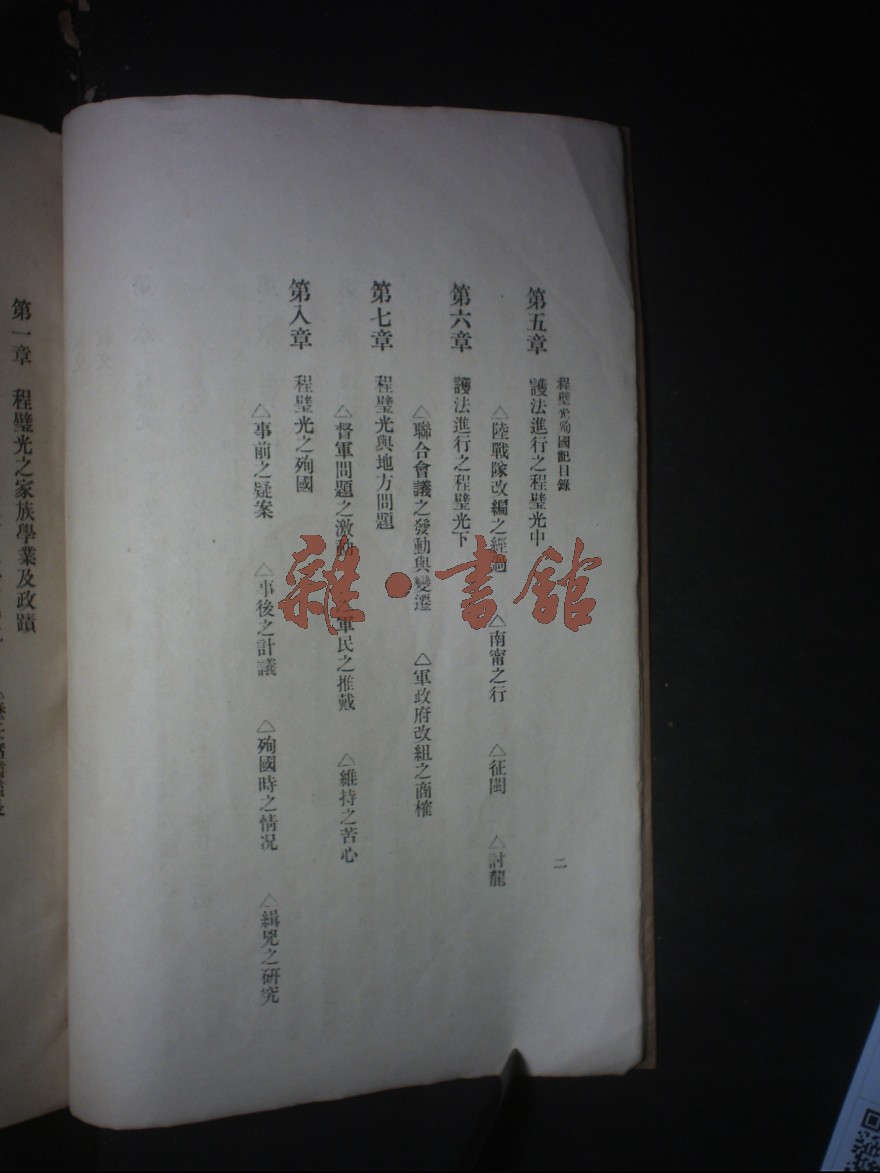 程璧光殉國記目錄
二
第五章 護法進行之程璧光中
△陸戰隊改編之經過 △南甯之行 △征閩 △討龍
第六章 護法進行之程璧光下
△聯合會議之發動與變遷 △軍政府改組之商榷
第七章 程璧光與地方問題
△督軍問題之激動 軍民之推戴 △維持之苦心
第八章 程璧光之殉國
△事前之疑案 △事後之計議 △殉國時之情況 △緝兇之研究
第一章 程璧光之家族學業及政蹟
雜·書館